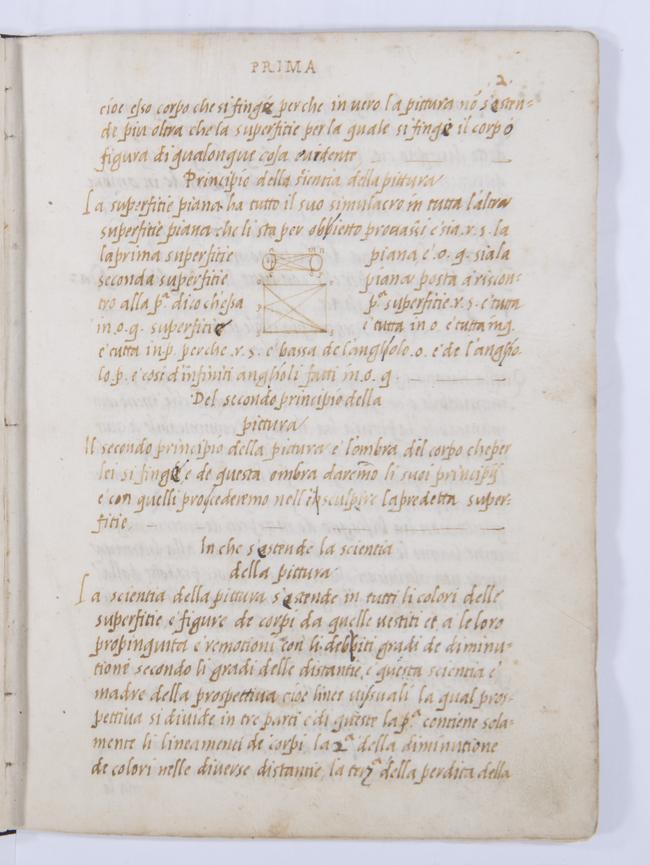 PRIMA
.2.
cioe esso corpo che si finge perche in vero la pittura nõ s'esten=
de piu oltra che la superfitie per la quale si finge il corpo
figura di qualonque cosa euidente
Principio della sientia della pittura
La superfitie piana ha tutto il suo simulacro in tutta l'altra
superfitie piana che li sta per obbietto prouasi e sia .r.s. la
la prima superfitie piana e .o.q. sia la
seconda superfitie piana posta a riscon=
tro alla pª dico ch'essa pª superfitie .r.s. e tutta
in .o.q. superfitie e tutta in o. e tutta in q.
e tutta in p. perche .r.s. e bassa de l'angholo .o. e de l'angho
lo p. e cosi d'infiniti angholi fatti in .o.q.
Del secondo principio della
pittura
Il secondo principio della pittura e l'ombra del corpo che per
lei si finge e de questa ombra daremo li suoi principij
e con quelli procederemo nell'isculpire la predetta super=
fitie
In che s'estende la scientia
della pittura
La scientia della pittura s'estende in tutti li colori delle
superfitie e figure de corpi da quelle vestiti et a le loro
propinquita e remotioni con li debbiti gradi de diminu=
tione secondo li gradi delle distantie, e questa scientia e'
madre della prospettiua cioe linee uisuali la qual pros=
pettiua si diuide in tre parti e di queste la pª contiene sola=
mente li lineamenti de corpi, la 2ª della diminutione
de colori nelle diuerse distantie, la terzª della perdita della